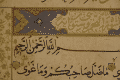 بسم الله الرحمن الرحيم
ما ضل صاحبكم وما غوى